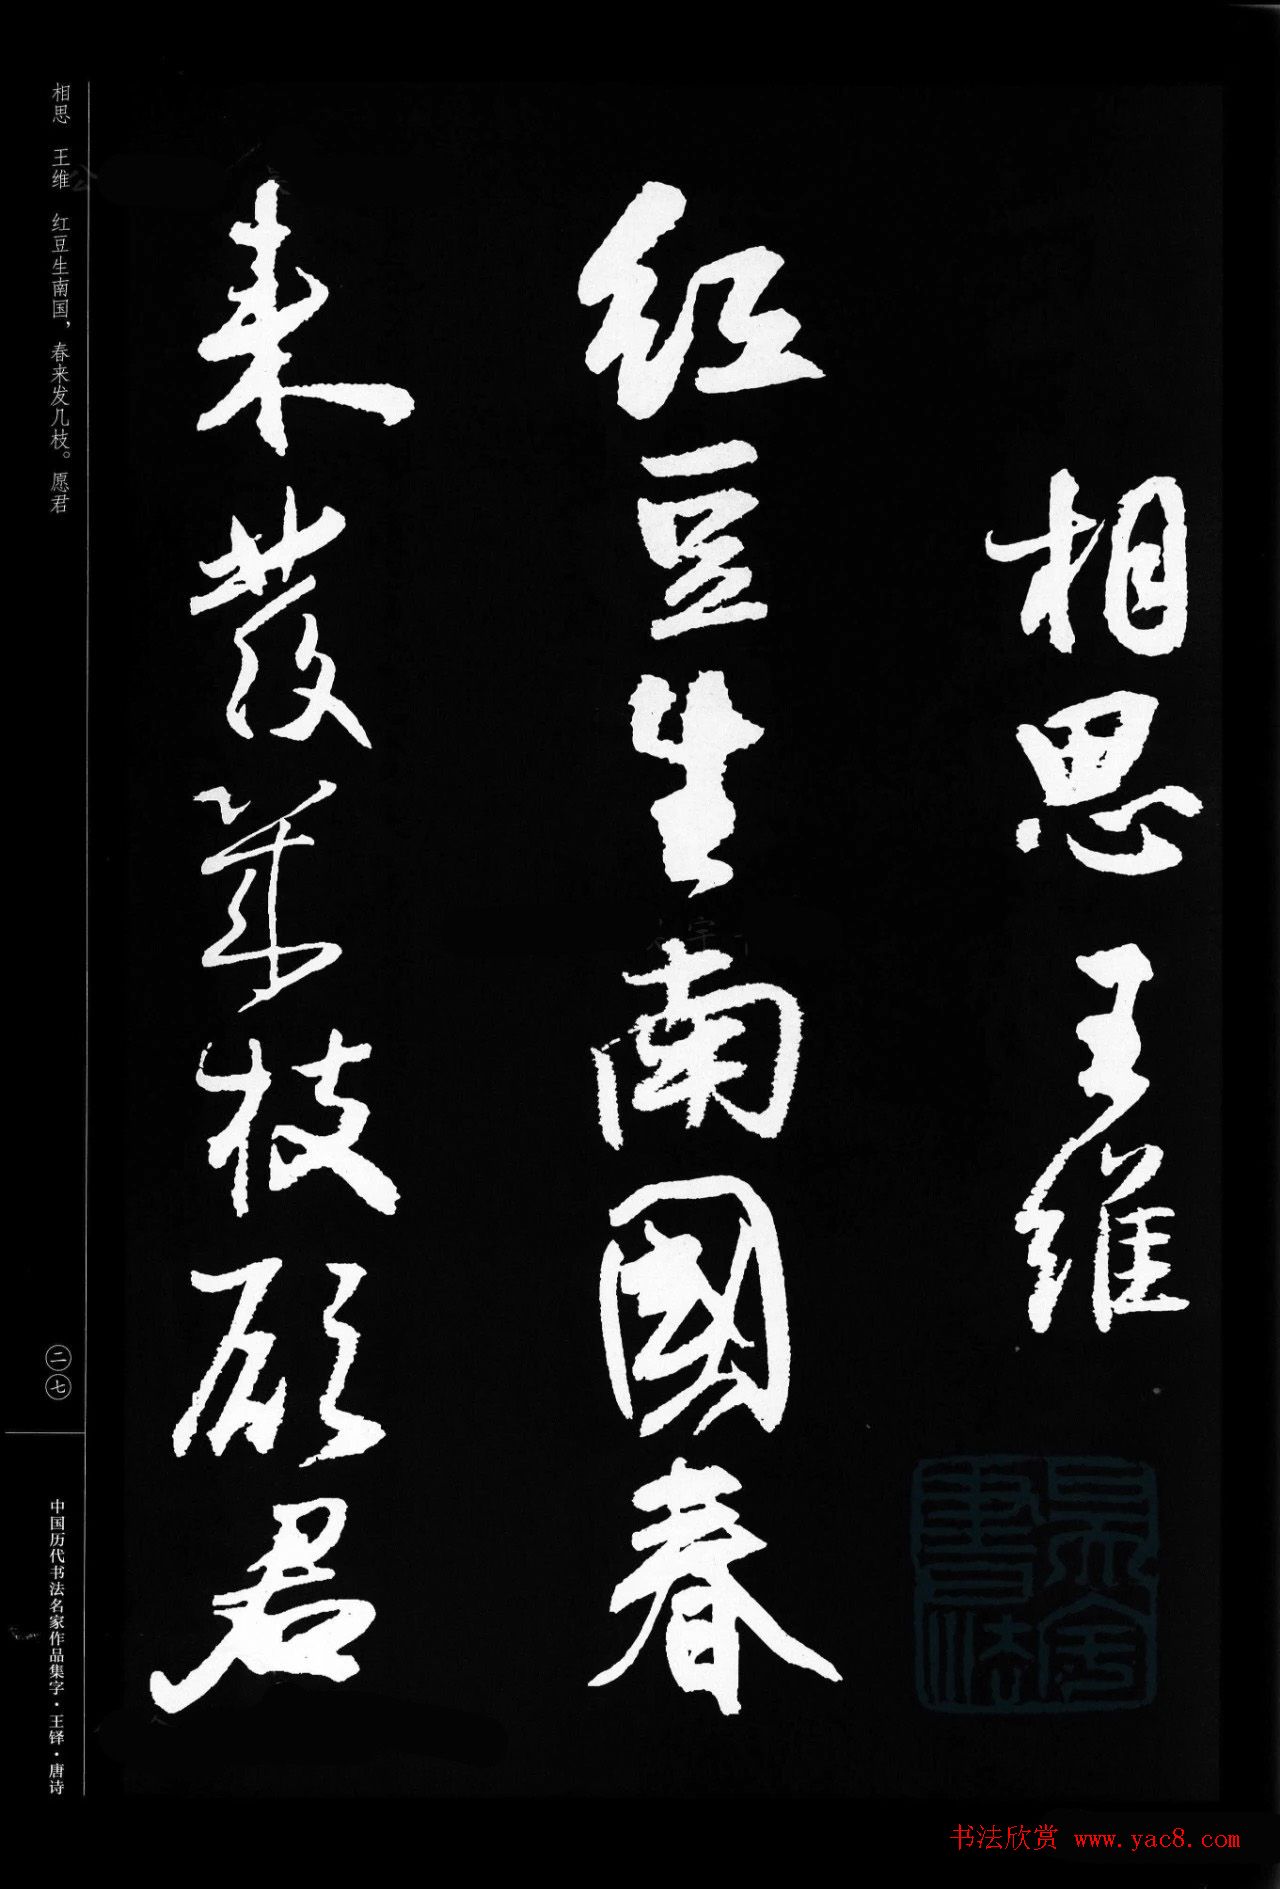 相思王維
紅豆生南國春
来發幾枝願君
相思 王维 红豆生南国，春来发几枝。愿君
二七
中国历代书法名家作品集字·王铎·唐诗
书法欣赏 www.yac8.com